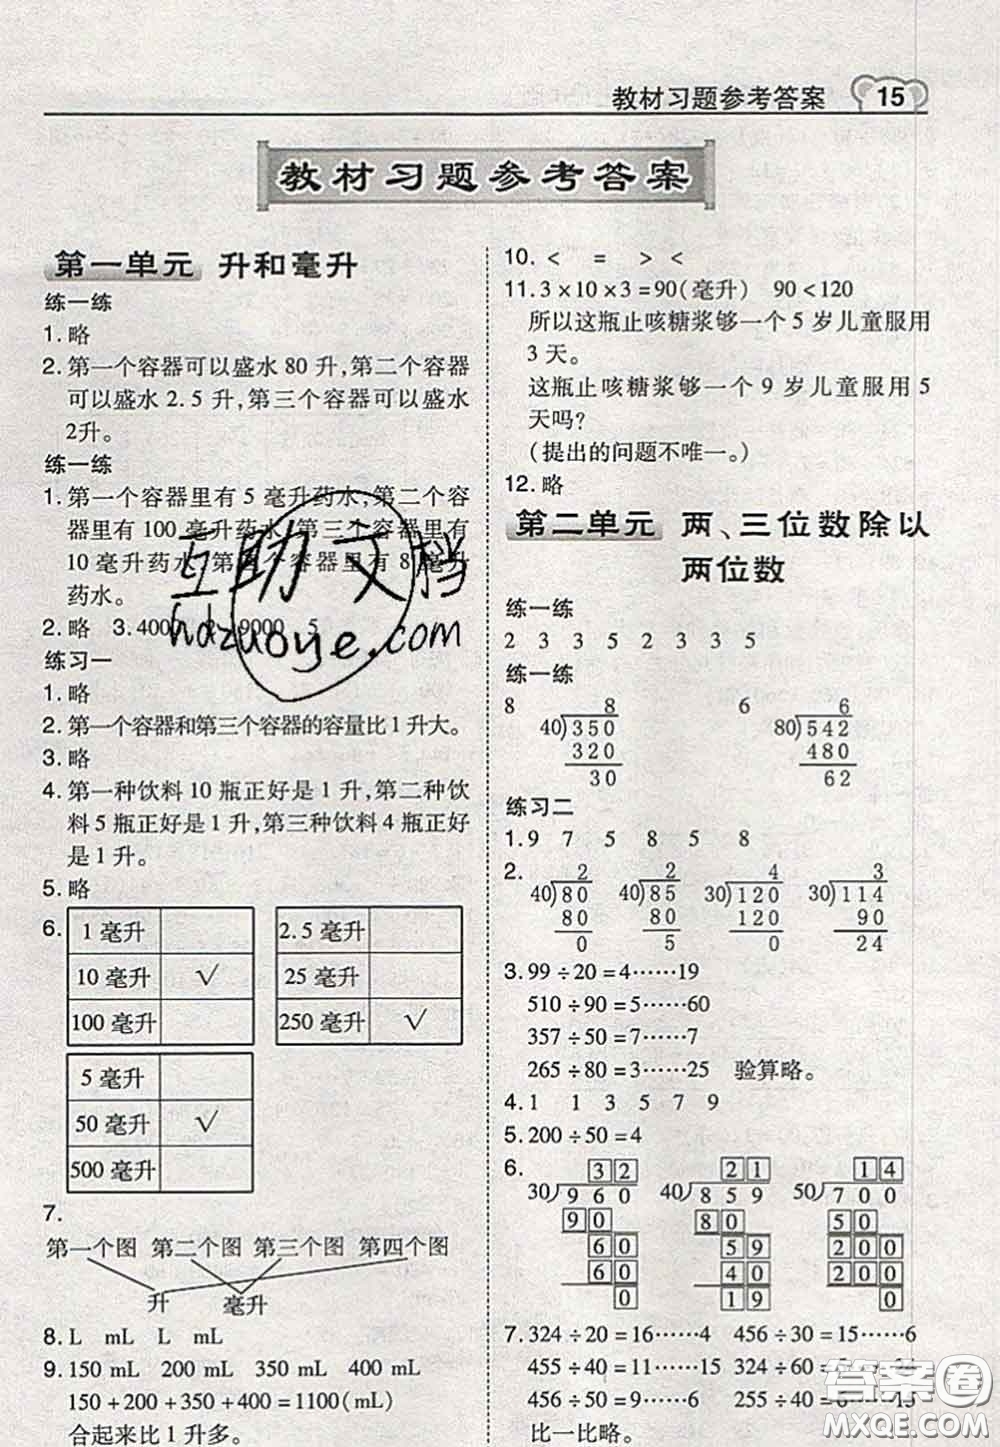 教材习题参考答案 15
教材习题参考答案
第一单元 升和毫升
练一练
1. 略
2. 第一个容器可以盛水 80 升,第二个容器
可以盛水 2.5 升,第三个容器可以盛水
2升。
练一练
1. 第一个容器里有 5 毫升药水,第二个容
器里有 100 毫升药水,第三个容器里有
10 毫升药水,第四个容器里有 8 毫升
药水。
2. 略 3. 4000 2 9000 5
练习一
1. 略
2. 第一个容器和第三个容器的容量比 1 升大。
3. 略
4. 第一种饮料 10 瓶正好是 1 升,第二种饮
料 5 瓶正好是 1 升,第三种饮料 4 瓶正好
是 1 升。
5. 略
6.
1 毫升
10 毫升 √
100 毫升
2.5 毫升
25 毫升
250 毫升 √
5 毫升
50 毫升 √
500 毫升
7.
第一个图 第二个图 第三个图 第四个图
升 毫升
8. L mL L mL
9. 150 mL 200 mL 350 mL 400 mL
150 + 200 + 350 + 400 = 1100(mL)
合起来比 1 升多。
10. < = > <
11. 3 × 10 × 3 = 90(毫升) 90 < 120
所以这瓶止咳糖浆够一个 5 岁儿童服用
3 天。
这瓶止咳糖浆够一个 9 岁儿童服用 5
天吗?
(提出的问题不唯一。)
12. 略
第二单元 两、三位数除以
两位数
练一练
2 3 3 5 2 3 3 5
练一练
8 8 6 6
40)350 80)542
320 480
30 62
练习二
1. 9 7 5 8 5 8
2. 2 2 4 3
40)80 40)85 30)120 30)114
80 80 120 90
0 5 0 24
3. 99 ÷ 20 = 4……19
510 ÷ 90 = 5……60
357 ÷ 50 = 7……7
265 ÷ 80 = 3……25 验算略。
4. 1 1 3 5 7 9
5. 200 ÷ 50 = 4
6. 32 21 14
30)960 40)859 50)700
90 80 50
60 59 200
60 40 200
0 19 0
7. 324 ÷ 20 = 16……4 456 ÷ 30 = 15……6
455 ÷ 40 = 11……15 324 ÷ 60 = 5……24
456 ÷ 50 = 9……6 255 ÷ 40 = 6……15
比一比略。
互助文档
hdzuoye.com
答案圈
MXQE.COM